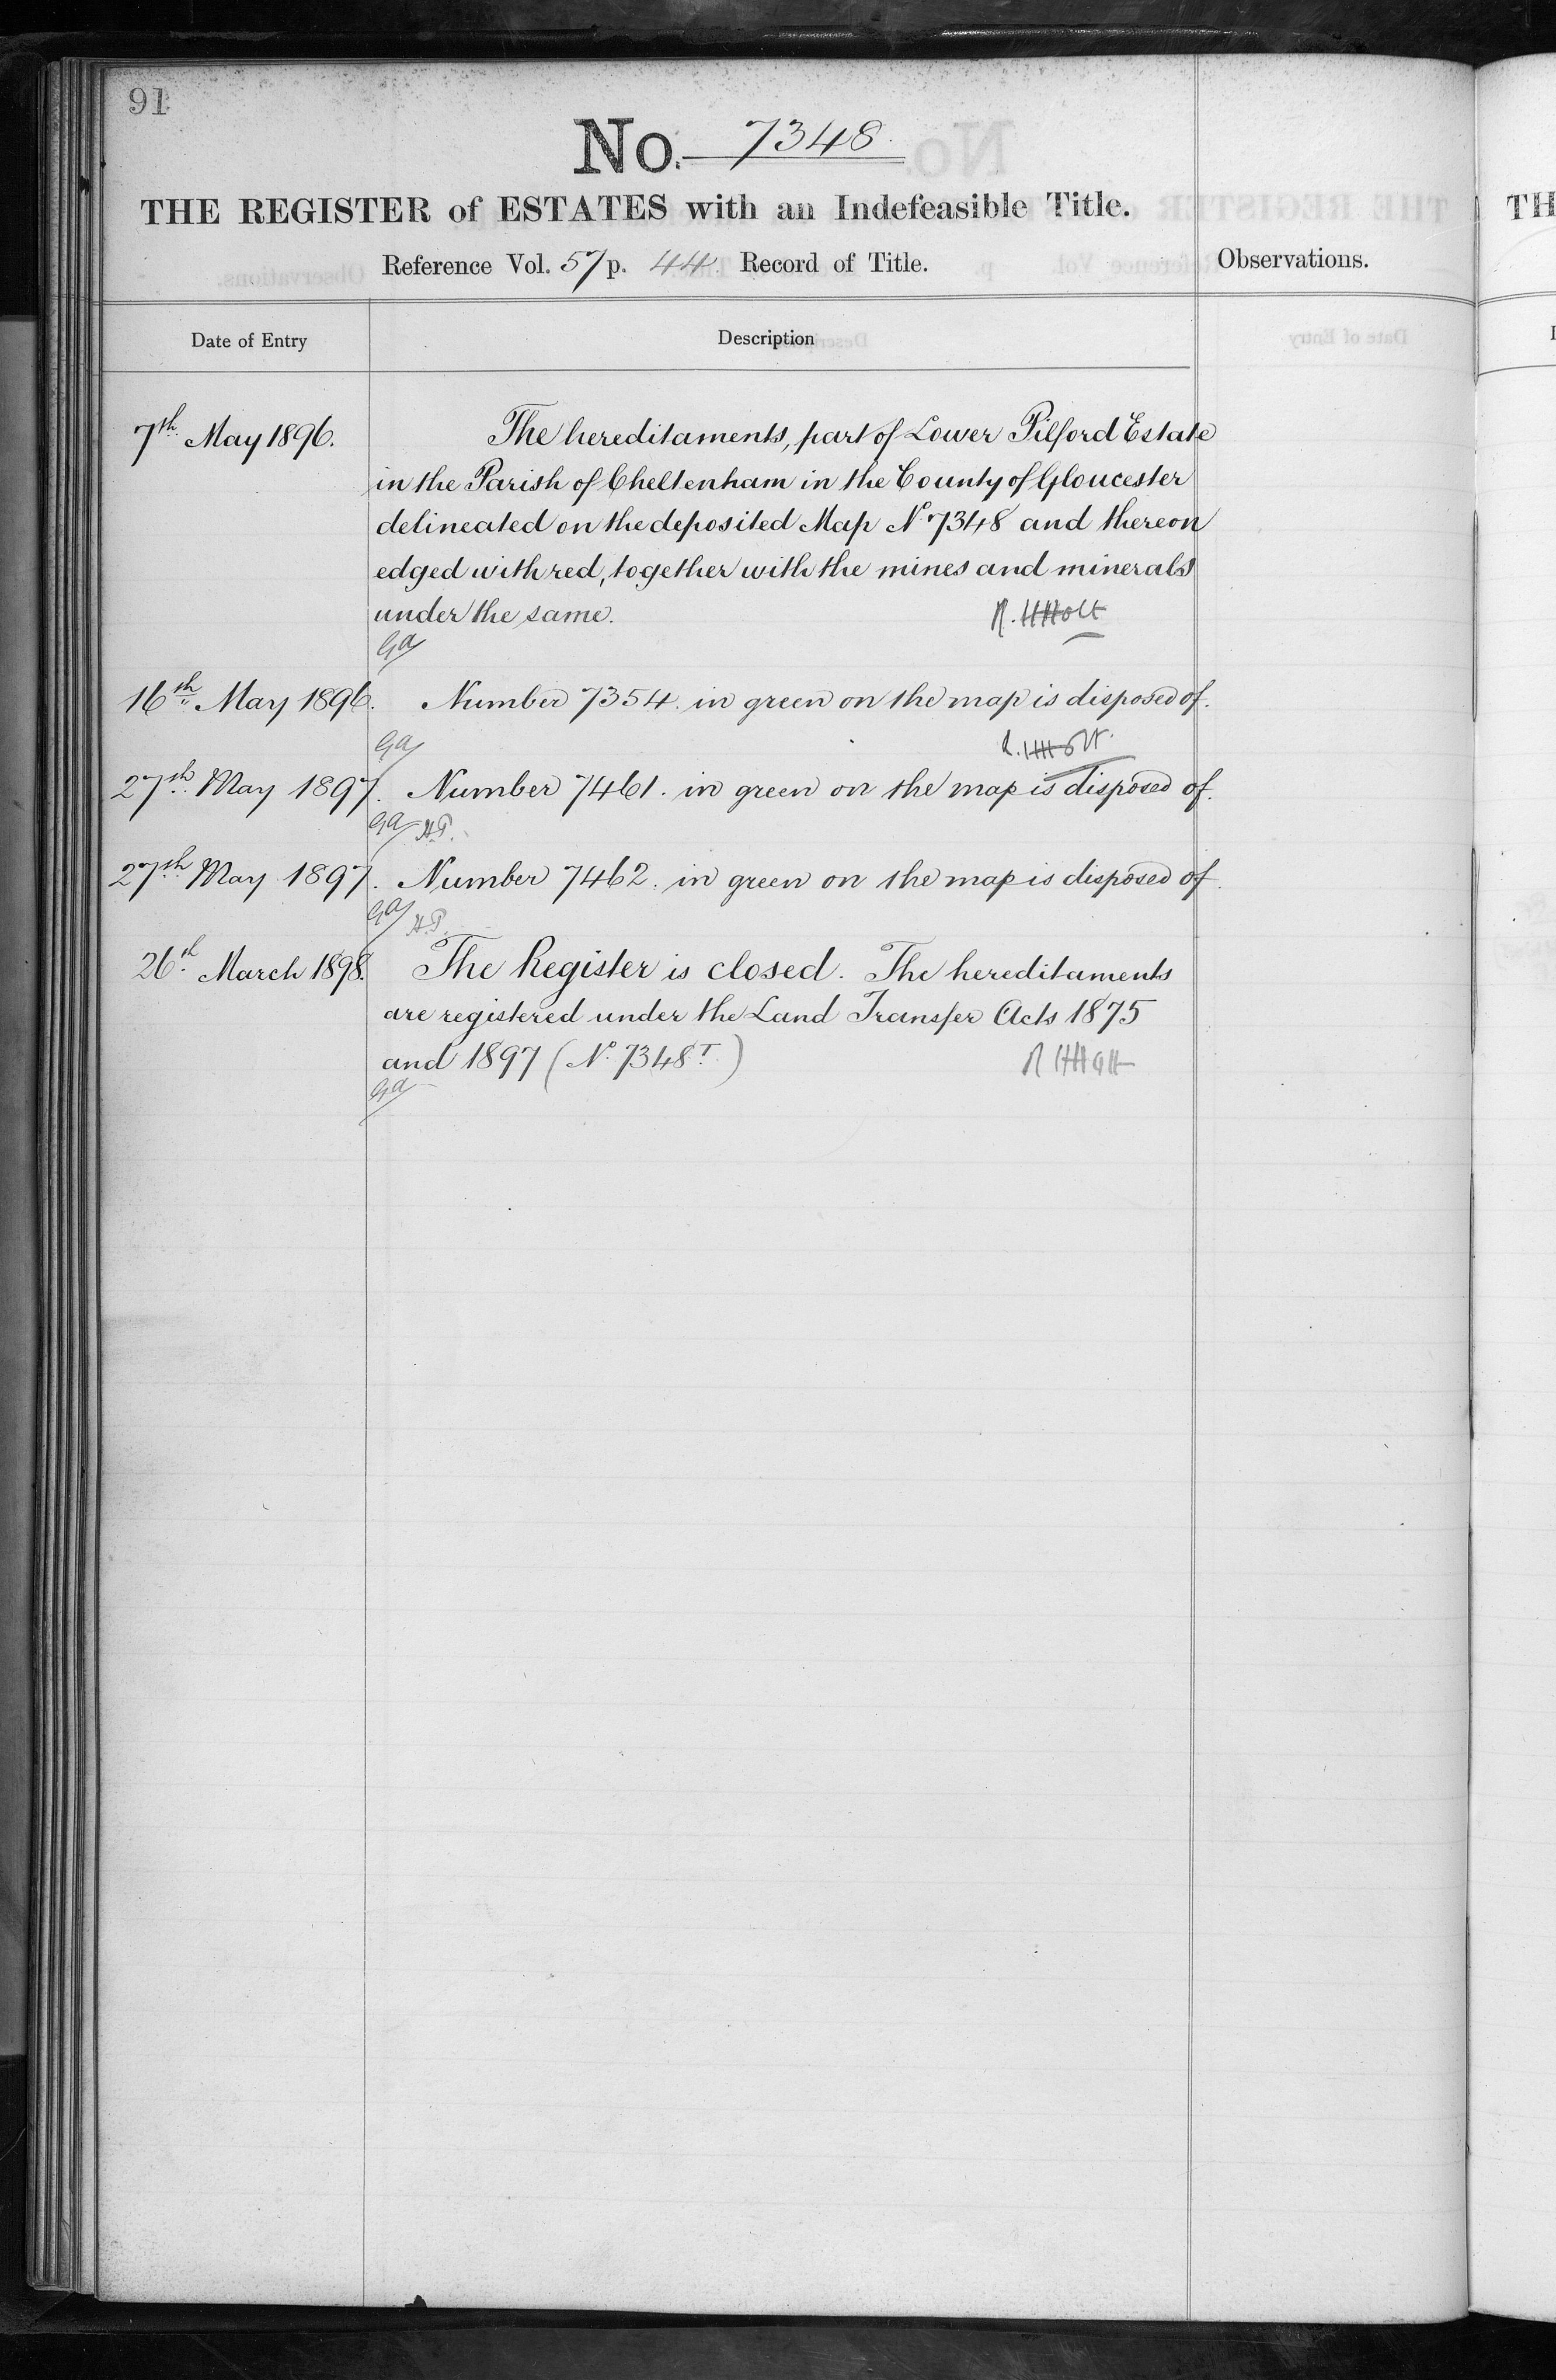 91
No. 7348
THE REGISTER of ESTATES with an Indefeasible Title.
Reference Vol. 57 p. 44 Record of Title.
Observations.
Date of Entry
Description
7th May 1896.
The hereditaments, part of Lower Pilford Estate
in the Parish of Cheltenham in the County of Gloucester
delineated on the deposited Map No 7348 and thereon
edged with red, together with the mines and minerals
under the same.
R. H Holt
Ga
16th May 1896. Number 7354. in green on the map is disposed of.
Ga
R. H Holt.
27th May 1897. Number 7461. in green on the map is disposed of.
Ga H.P.
27th May 1897. Number 7462. in green on the map is disposed of.
Ga H.P.
26th March 1898. The Register is closed. The hereditaments
are registered under the Land Transfer Acts 1875
and 1897 (No. 7348T.)
R H Holt
Ga
TH